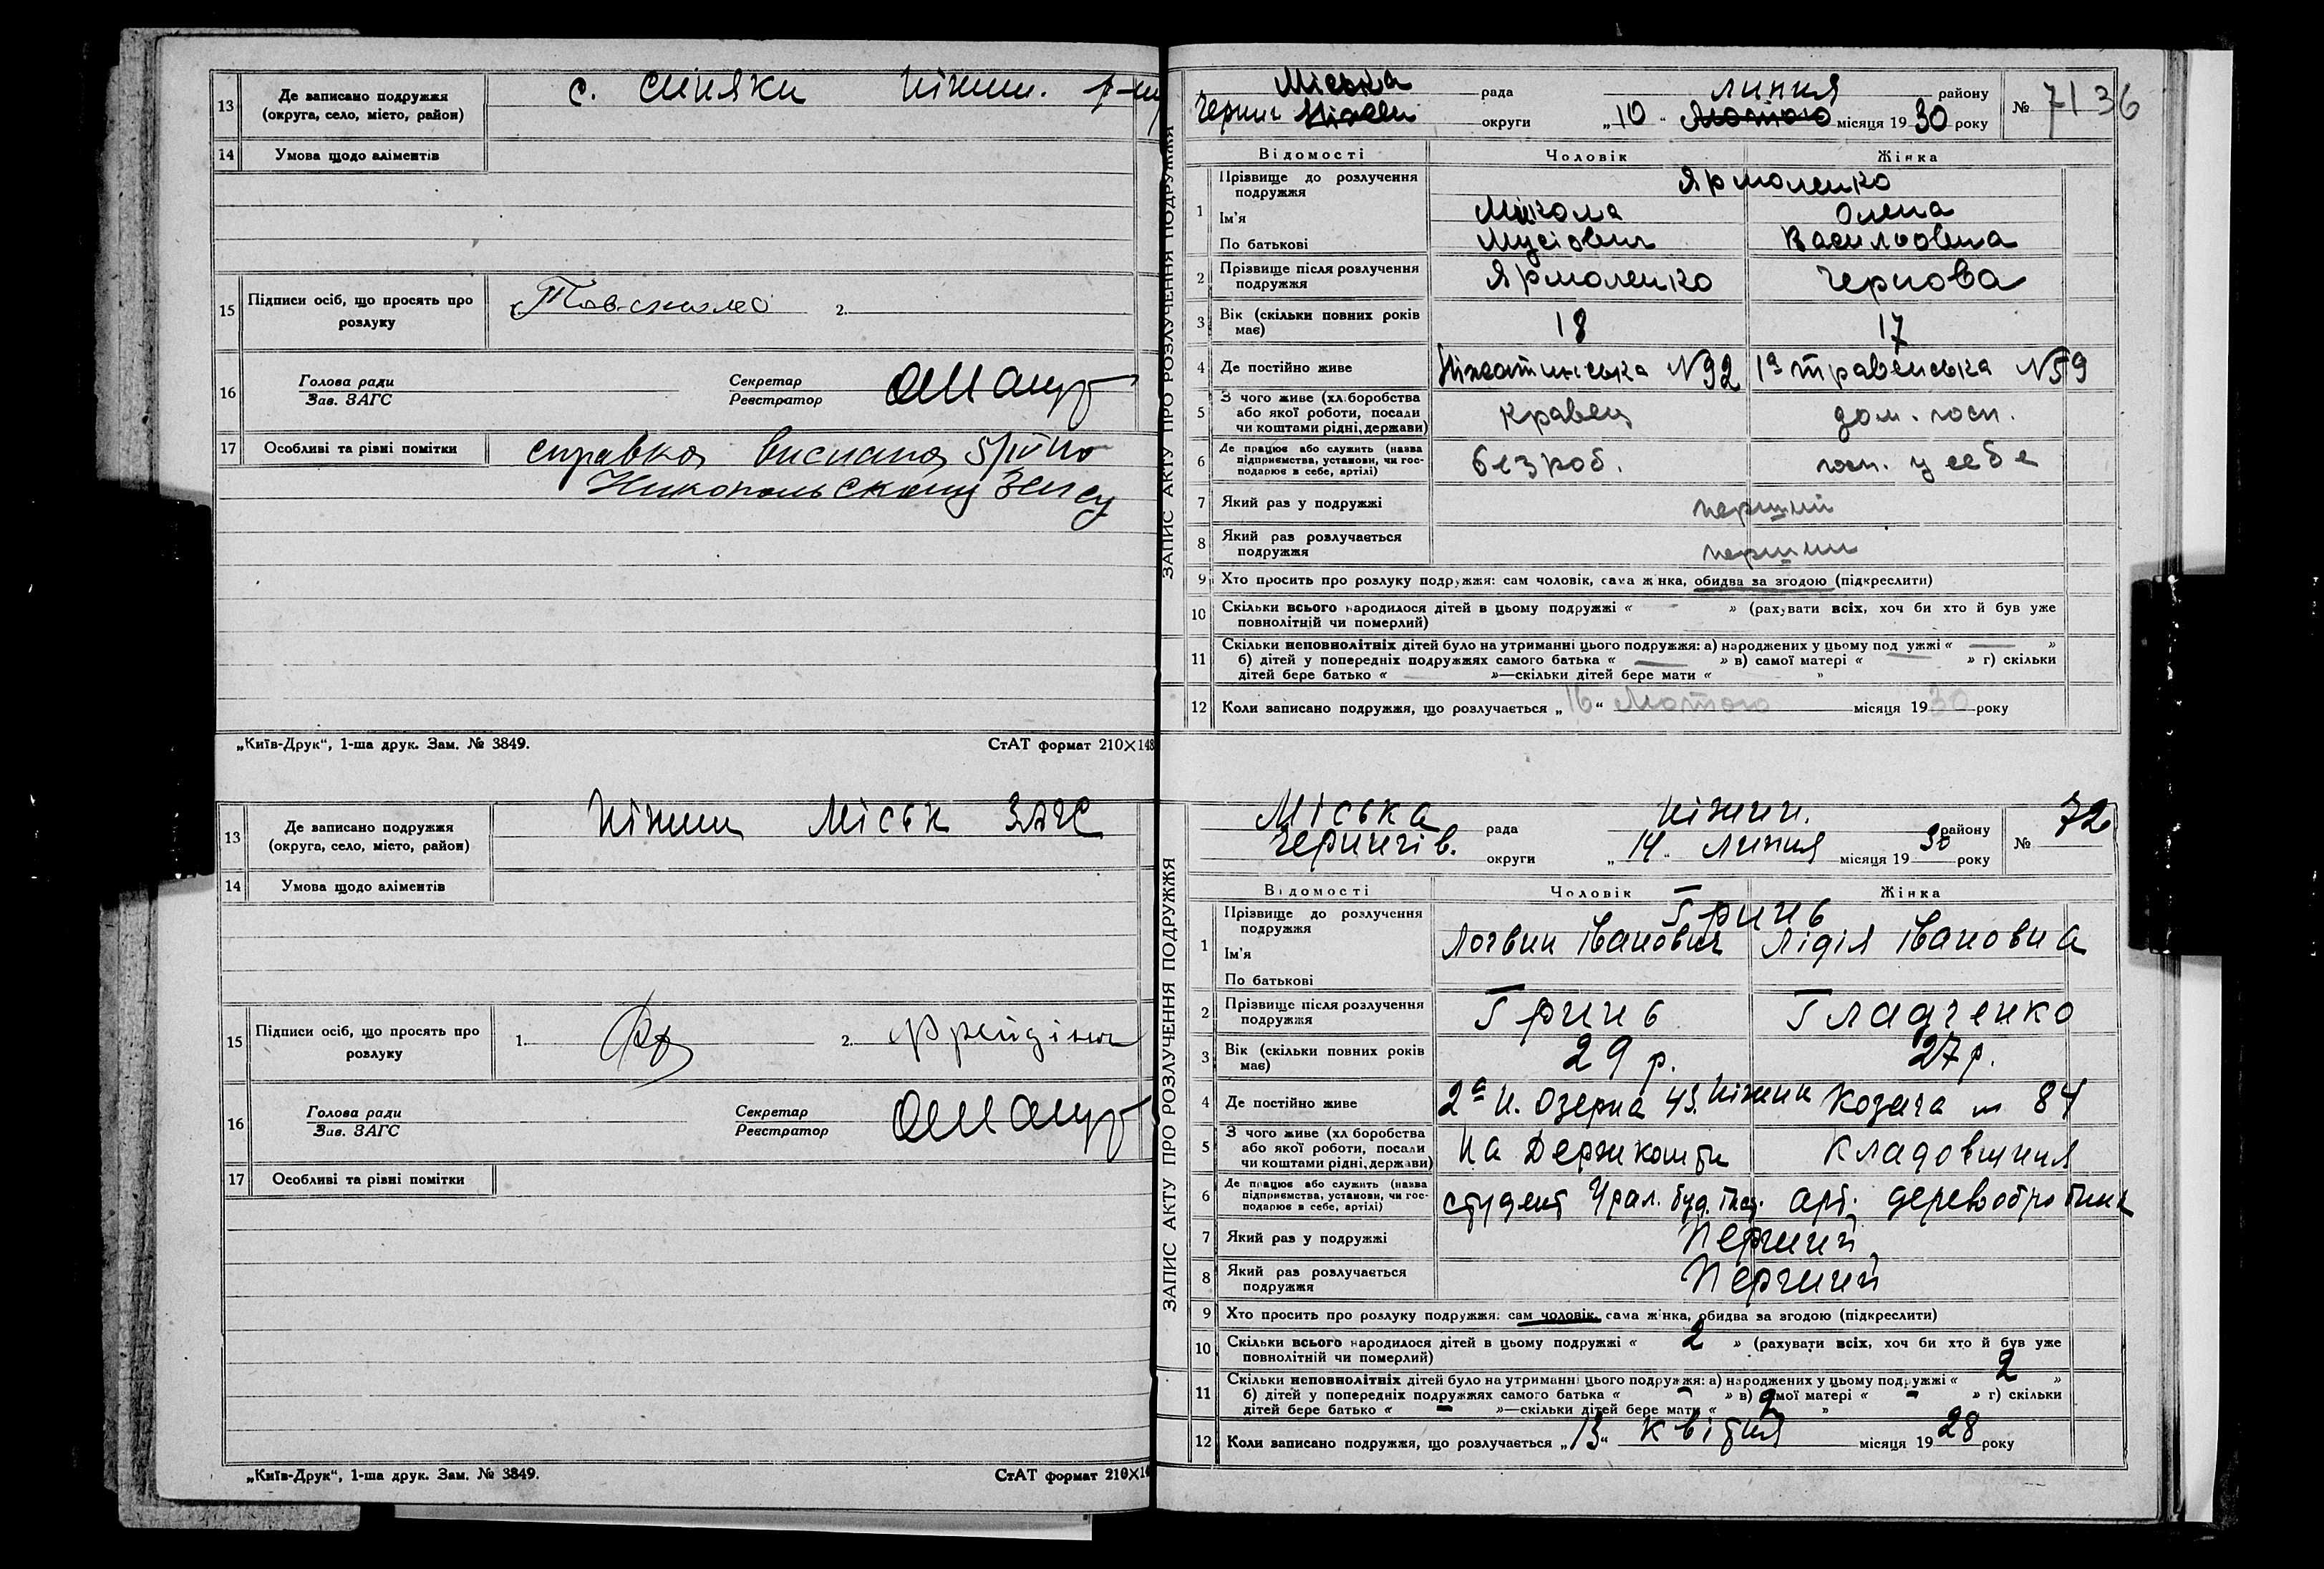 13 Де записано подружжя с. Синяки Ніжин. р-ну
(округа, село, місто, район)
14 Умова щодо аліментів
15 Підписи осіб, що просять про 2.
розлуку
16 Голова ради Секретар
Зав. ЗАГС Реєстратор
17 Особливі та різні помітки справка висилана 5/IV по
Никопольскому Загсу
„Київ-Друк“, 1-ша друк. Зам. № 3849. СтАТ формат 210×148
13 Де записано подружжя Ніжин Міськ ЗАГС
(округа, село, місто, район)
14 Умова щодо аліментів
15 Підписи осіб, що просять про 1. 2.
розлуку
16 Голова ради Секретар
Зав. ЗАГС Реєстратор
17 Особливі та різні помітки
„Київ-Друк“, 1-ша друк. Зам. № 3849. СтАТ формат 210×14
ЗАПИС АКТУ ПРО РОЗЛУЧЕННЯ ПОДРУЖЖЯ
Міська рада липня району № 71 36
Черниг округи „10“ Лютого місяця 1930 року
Відомості Чоловік Жінка
1 Прізвище до розлучення Ярмоленко
подружжя
Ім'я Микола Олена
По батькові Мусіович Васильовна
2 Прізвище після розлучення Ярмоленко Чернова
подружжя
3 Вік (скільки повних років 18 17
має)
4 Де постійно живе Ніжатинська №92 1а травенська №59
5 З чого живе (хліборобства
або якої роботи, посади кравец дом. госп.
чи коштами рідні, держави)
6 Де працює або служить (назва
підприємства, установи, чи гос- безроб. госп. у себе
подарює в себе, артілі)
7 Який раз у подружжі перший
8 Який раз розлучається перший
подружжя
9 Хто просить про розлуку подружжя: сам чоловік, сама жінка, обидва за згодою (підкреслити)
10 Скільки всього народилося дітей в цьому подружжі « — » (рахувати всіх, хоч би хто й був уже
повнолітній чи померлий)
11 Скільки неповнолітніх дітей було на утриманні цього подружжя: а) народжених у цьому подружжі « — »
б) дітей у попередніх подружжях самого батька « — » в) самої матері « — » г) скільки
дітей бере батько « — »—скільки дітей бере мати « »
12 Коли записано подружжя, що розлучається „16“ Лютого місяця 1930 року
ЗАПИС АКТУ ПРО РОЗЛУЧЕННЯ ПОДРУЖЖЯ
Міська рада Ніжин. району № 72
Чернигів. округи „14“ липня місяця 1930 року
Відомості Чоловік Жінка
1 Прізвище до розлучення Гринь
подружжя
Ім'я Логвин Іванович Лідія Івановна
По батькові
2 Прізвище після розлучення Гринь Гладченко
подружжя
3 Вік (скільки повних років 29 р. 27 р.
має)
4 Де постійно живе 2а Н. Озерна 43. Ніжин Козача № 84
5 З чого живе (хліборобства
або якої роботи, посади на Держ кошти Кладовщиця
чи коштами рідні, держави)
6 Де працює або служить (назва
підприємства, установи, чи гос- студент Урал. буд. інст. арт. деревообробник
подарює в себе, артілі)
7 Який раз у подружжі Перший
8 Який раз розлучається Перший
подружжя
9 Хто просить про розлуку подружжя: сам чоловік, сама жінка, обидва за згодою (підкреслити)
10 Скільки всього народилося дітей в цьому подружжі « 2 » (рахувати всіх, хоч би хто й був уже
повнолітній чи померлий)
11 Скільки неповнолітніх дітей було на утриманні цього подружжя: а) народжених у цьому подружжі « 2 »
б) дітей у попередніх подружжях самого батька « - » в) самої матері « - » г) скільки
дітей бере батько « - »—скільки дітей бере мати « 2 »
12 Коли записано подружжя, що розлучається „13“ квітня місяця 1928 року